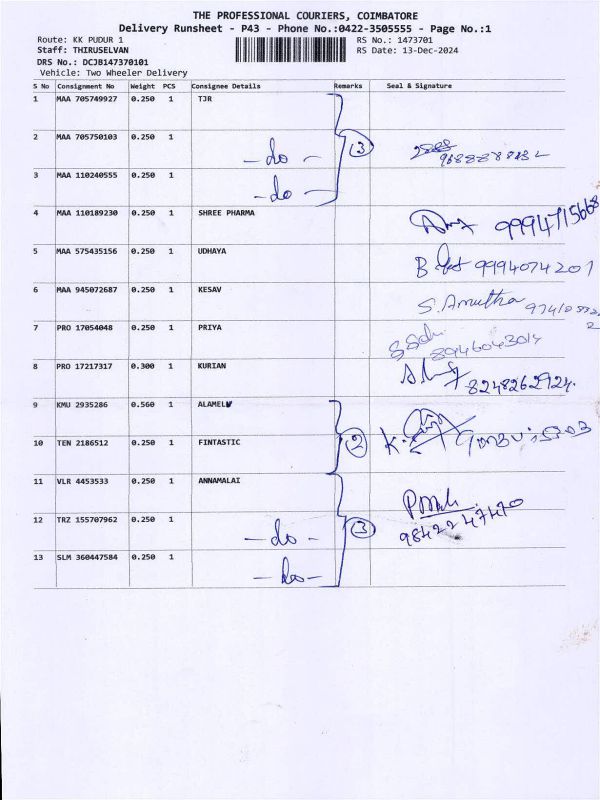 THE PROFESSIONAL COURIERS, COIMBATORE
Delivery Runsheet - P43 - Phone No.:0422-3505555 - Page No.:1
Route: KK PUDUR 1 RS No.: 1473701
Staff: THIRUSELVAN RS Date: 13-Dec-2024
DRS No.: DCJB147370101
Vehicle: Two Wheeler Delivery
S No Consignment No Weight PCS Consignee Details Remarks Seal & Signature
1 MAA 705749927 0.250 1 TJR
2 MAA 705750103 0.250 1 - do - 3
3 MAA 110240555 0.250 1 - do -
4 MAA 110189230 0.250 1 SHREE PHARMA 9994715668
5 MAA 575435156 0.250 1 UDHAYA 9994074201
6 MAA 945072687 0.250 1 KESAV S. Amutha
7 PRO 17054048 0.250 1 PRIYA 8946043014
8 PRO 17217317 0.300 1 KURIAN 8248262924
9 KMU 2935286 0.560 1 ALAMELU
10 TEN 2186512 0.250 1 FINTASTIC 2
11 VLR 4453533 0.250 1 ANNAMALAI
12 TRZ 155707962 0.250 1 - do - 3 9842247470
13 SLM 360447584 0.250 1 - do -